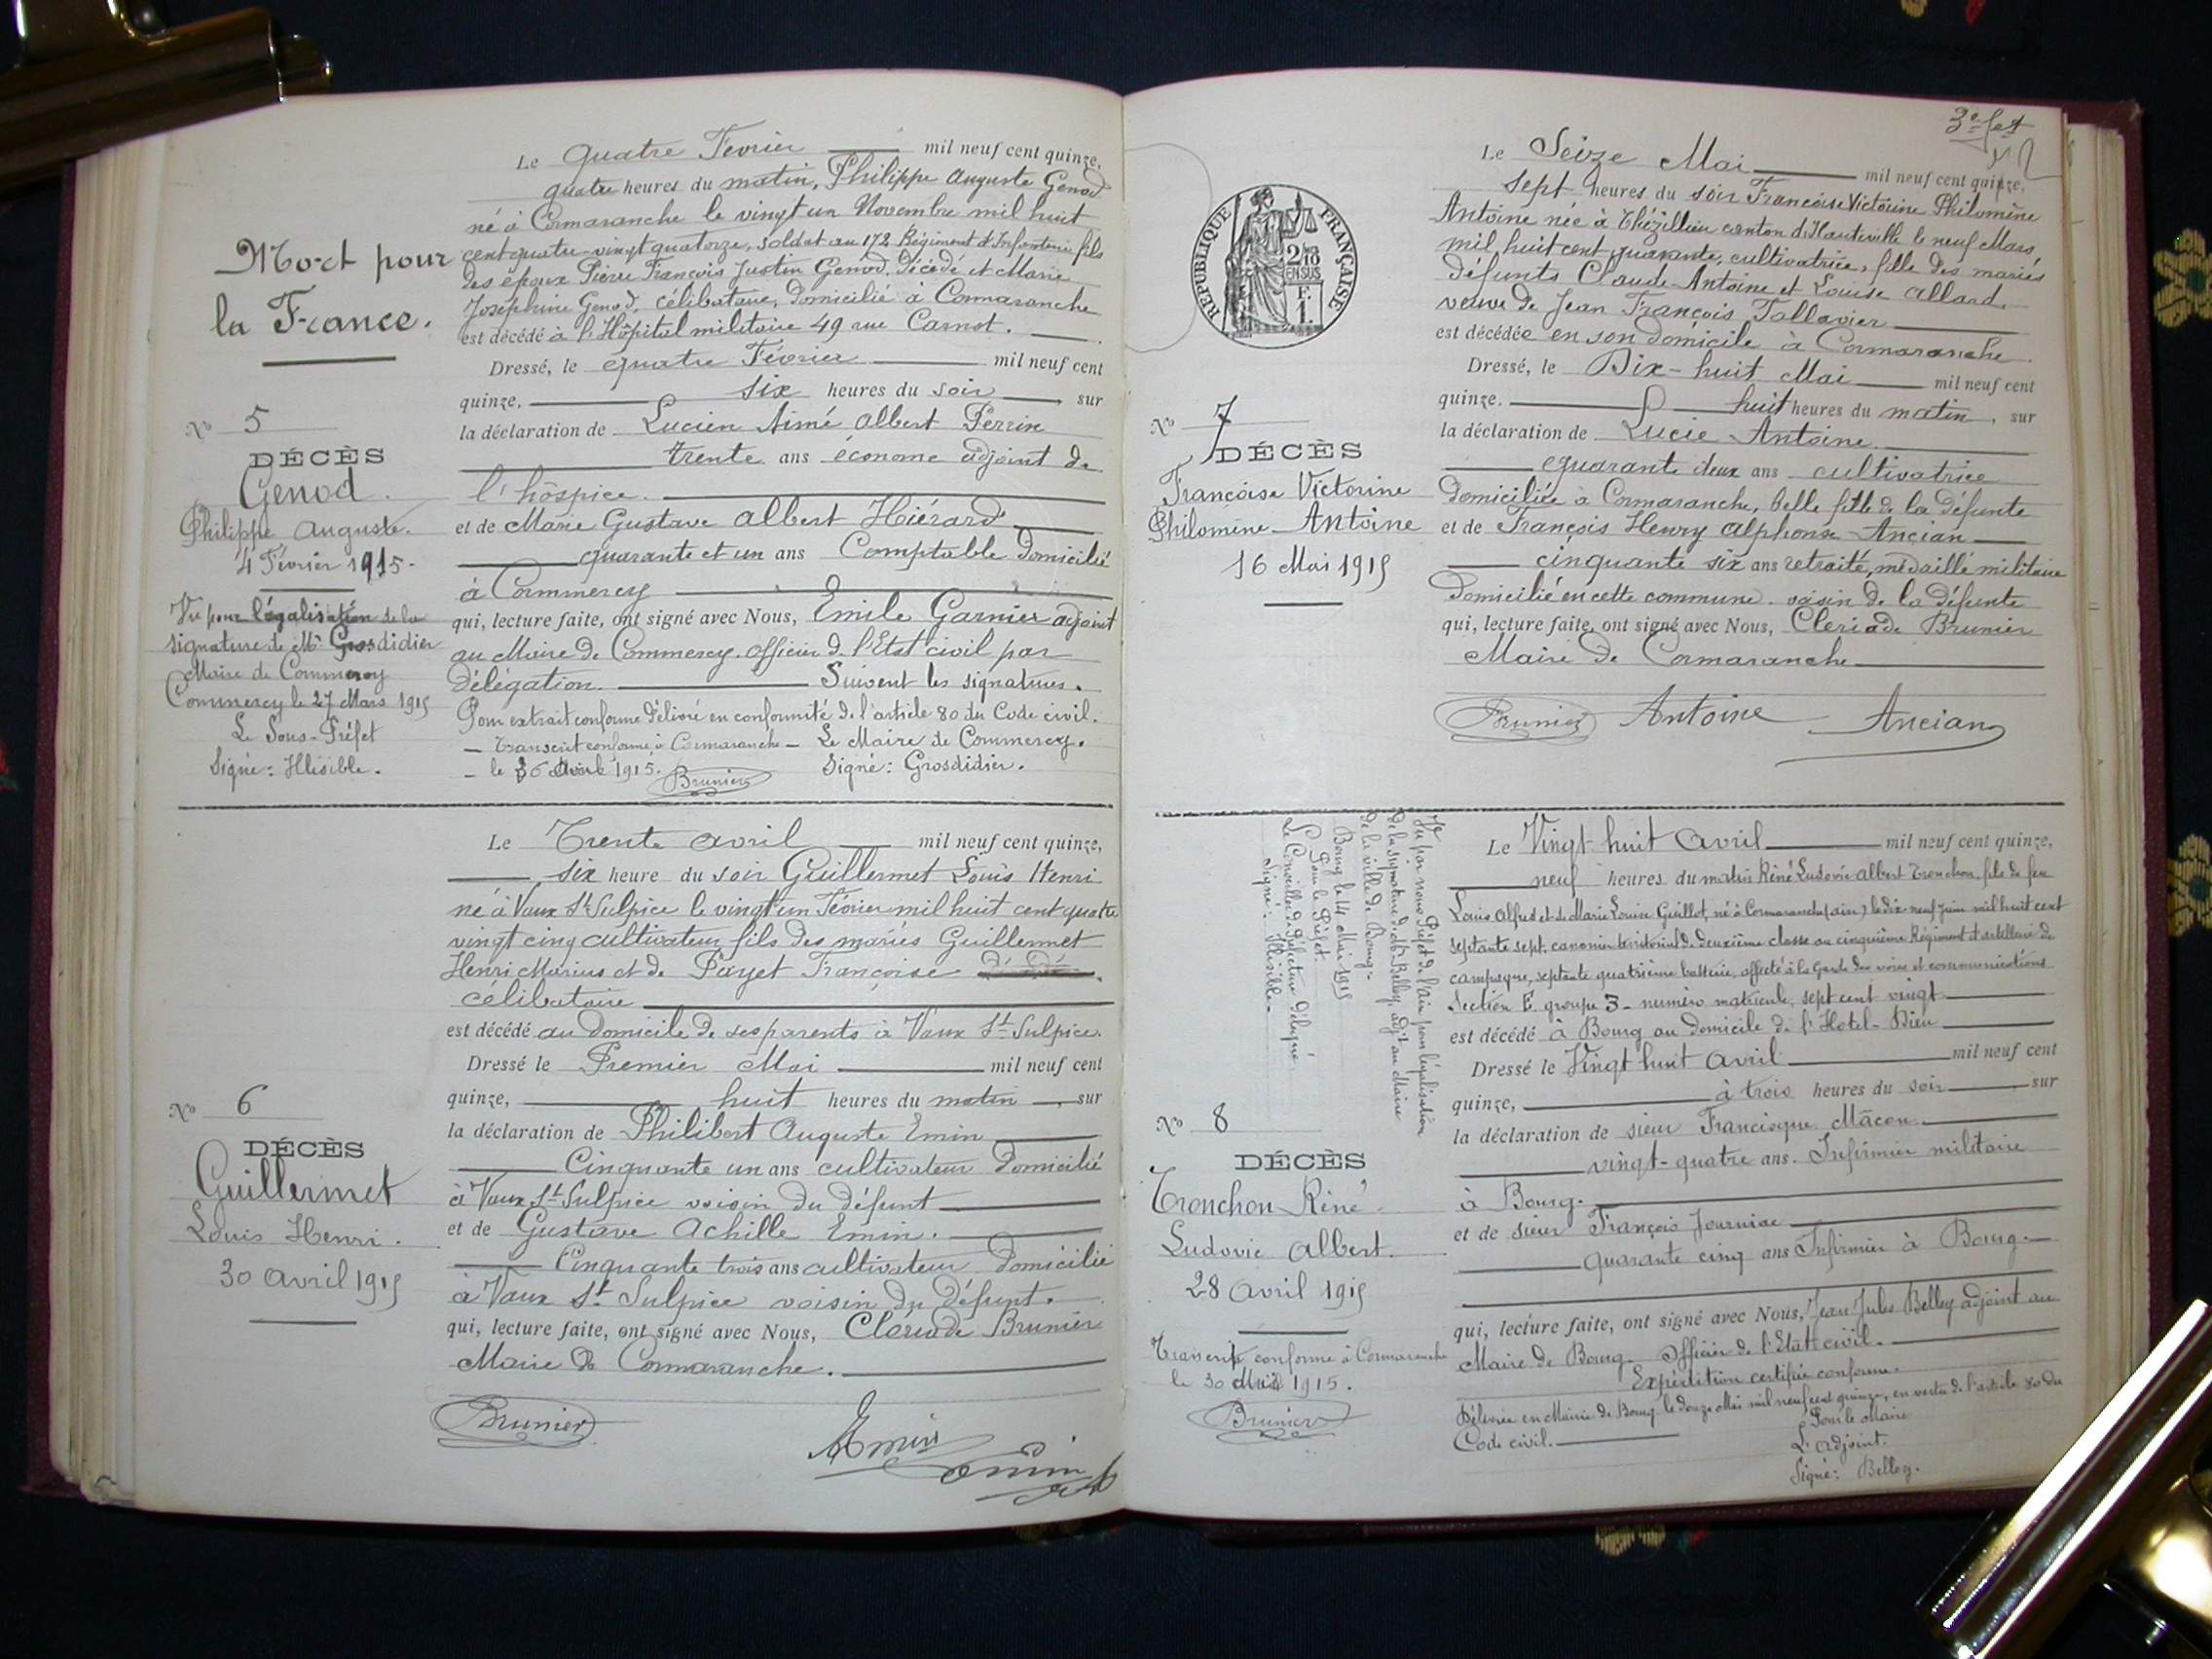 Mort pour
la France.
Nº 5
DÉCÈS
Genod
Philippe Auguste.
4 Février 1915.
Vu pour légalisation de la
signature de Mr Grosdidier
Maire de Commercy
Commercy le 27 Mars 1915
Le Sous-Préfet
Signé: Illisible.
Le quatre Fevrier mil neuf cent quinze,
quatre heures du matin, Philippe Auguste Genod
né à Cormaranche le vingt un Novembre mil huit
cent quatre-vingt quatorze, soldat au 172 Régiment d'Infanterie fils
des époux Pierre François Justin Genod, décédé et Marie
Joséphine Genod, célibataire, domicilié à Cormaranche
est décédé à l'Hôpital militaire 49 rue Carnot.
Dressé, le quatre Février mil neuf cent
quinze, six heures du soir sur
la déclaration de Lucien Aimé Albert Perrin
trente ans économe adjoint de
l'hospice.
et de Marie Gustave Albert Hiérard
quarante et un ans Comptable domicilié
à Commercy
qui, lecture faite, ont signé avec Nous, Emile Garnier adjoint
au Maire de Commercy. officier de l'Etat civil par
délégation. Suivent les signatures.
Pour extrait conforme délivré en conformité de l'article 80 du Code civil.
– Transcrit conforme, à Cormaranche – Le Maire de Commercy.
– le 6 Avril 1915. Brunier Signé: Grosdidier.
Nº 6
DÉCÈS
Guillermet
Louis Henri.
30 Avril 1915
Le Trente avril mil neuf cent quinze,
six heure du soir Guillermet Louis Henri
né à Vaux St Sulpice le vingt un Février mil huit cent quatre
vingt cinq cultivateur fils des mariés Guillermet
Henri Marius et de Payet Françoise
célibataire
est décédé au domicile de ses parents à Vaux St Sulpice.
Dressé le Premier Mai mil neuf cent
quinze, huit heures du matin, sur
la déclaration de Philibert Auguste Emin
Cinquante un ans cultivateur domicilié
à Vaux St Sulpice voisin du défunt
et de Gustave Achille Emin.
Cinquante trois ans cultivateur domicilié
à Vaux St Sulpice voisin du défunt.
qui, lecture faite, ont signé avec Nous, Clériade Brunier
Maire de Cormaranche.
Brunier Emin
Emin
3e fet
RÉPUBLIQUE FRANÇAISE
2/10 EN SUS
F. 1.
Nº 7
DÉCÈS
Françoise Victorine
Philomène Antoine
16 Mai 1915
Le Seize Mai mil neuf cent quinze,
sept heures du soir Françoise Victorine Philomène
Antoine née à Thézillieu canton d'Hauteville le neuf Mars
mil huit cent quarante, cultivatrice, fille des mariés
défunts Claude Antoine et Louise Allard
veuve de Jean François Tallavier
est décédée en son domicile à Cormaranche
Dressé, le Dix-huit Mai mil neuf cent
quinze. huit heures du matin, sur
la déclaration de Lucie Antoine
quarante deux ans cultivatrice
domiciliée à Cormaranche, belle fille de la défunte
et de François Henry Alphonse Ancian
cinquante six ans retraité, médaillé militaire
domicilié en cette commune. voisin de la défunte
qui, lecture faite, ont signé avec Nous, Clériade Brunier
Maire de Cormaranche
Brunier Antoine Ancian
Vu par nous Préfet de l'Ain pour légalisation
de la signature de Mr Belley, adjt au Maire
de la ville de Bourg.
Bourg le 14 Mai 1915
Pour le Préfet
Le Conseiller de Préfecture délégué.
Signé: Illisible.
Nº 8
DÉCÈS
Tronchon Réné
Ludovic Albert.
28 Avril 1915
Transcrit conforme à Cormaranche
le 30 Mai 1915.
Brunier
Le Vingt huit Avril mil neuf cent quinze,
neuf heures du matin Réné Ludovic Albert Tronchon, fils de feu
Louis Alfred et de Marie Louise Guillot, né à Cormaranche (ain) le dix neuf Juin mil huit cent
septante sept, canonnier territorial de deuxième classe au cinquième Régiment d'artillerie de
campagne, septante quatrième batterie, affecté à la Garde des voies et communications
Section E groupe 3 – numéro matricule, sept cent vingt
est décédé à Bourg au domicile de l'Hotel-Dieu
Dressé le Vingt huit Avril mil neuf cent
quinze, à trois heures du soir sur
la déclaration de sieur Francisque Mâcon
vingt-quatre ans. Infirmier militaire
à Bourg.
et de sieur François Journiac
quarante cinq ans Infirmier à Bourg.
qui, lecture faite, ont signé avec Nous, Jean Jules Belley adjoint au
Maire de Bourg. Officier de l'Etat civil.
Expédition certifiée conforme.
Délivrée en Mairie de Bourg le douze Mai mil neuf cent quinze, en vertu de l'article 80 du
Code civil. Pour le Maire
L'adjoint.
Signé: Belley.